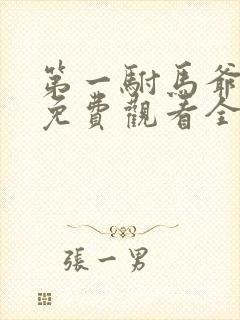 第一駙馬爺
免費觀看全
張一男